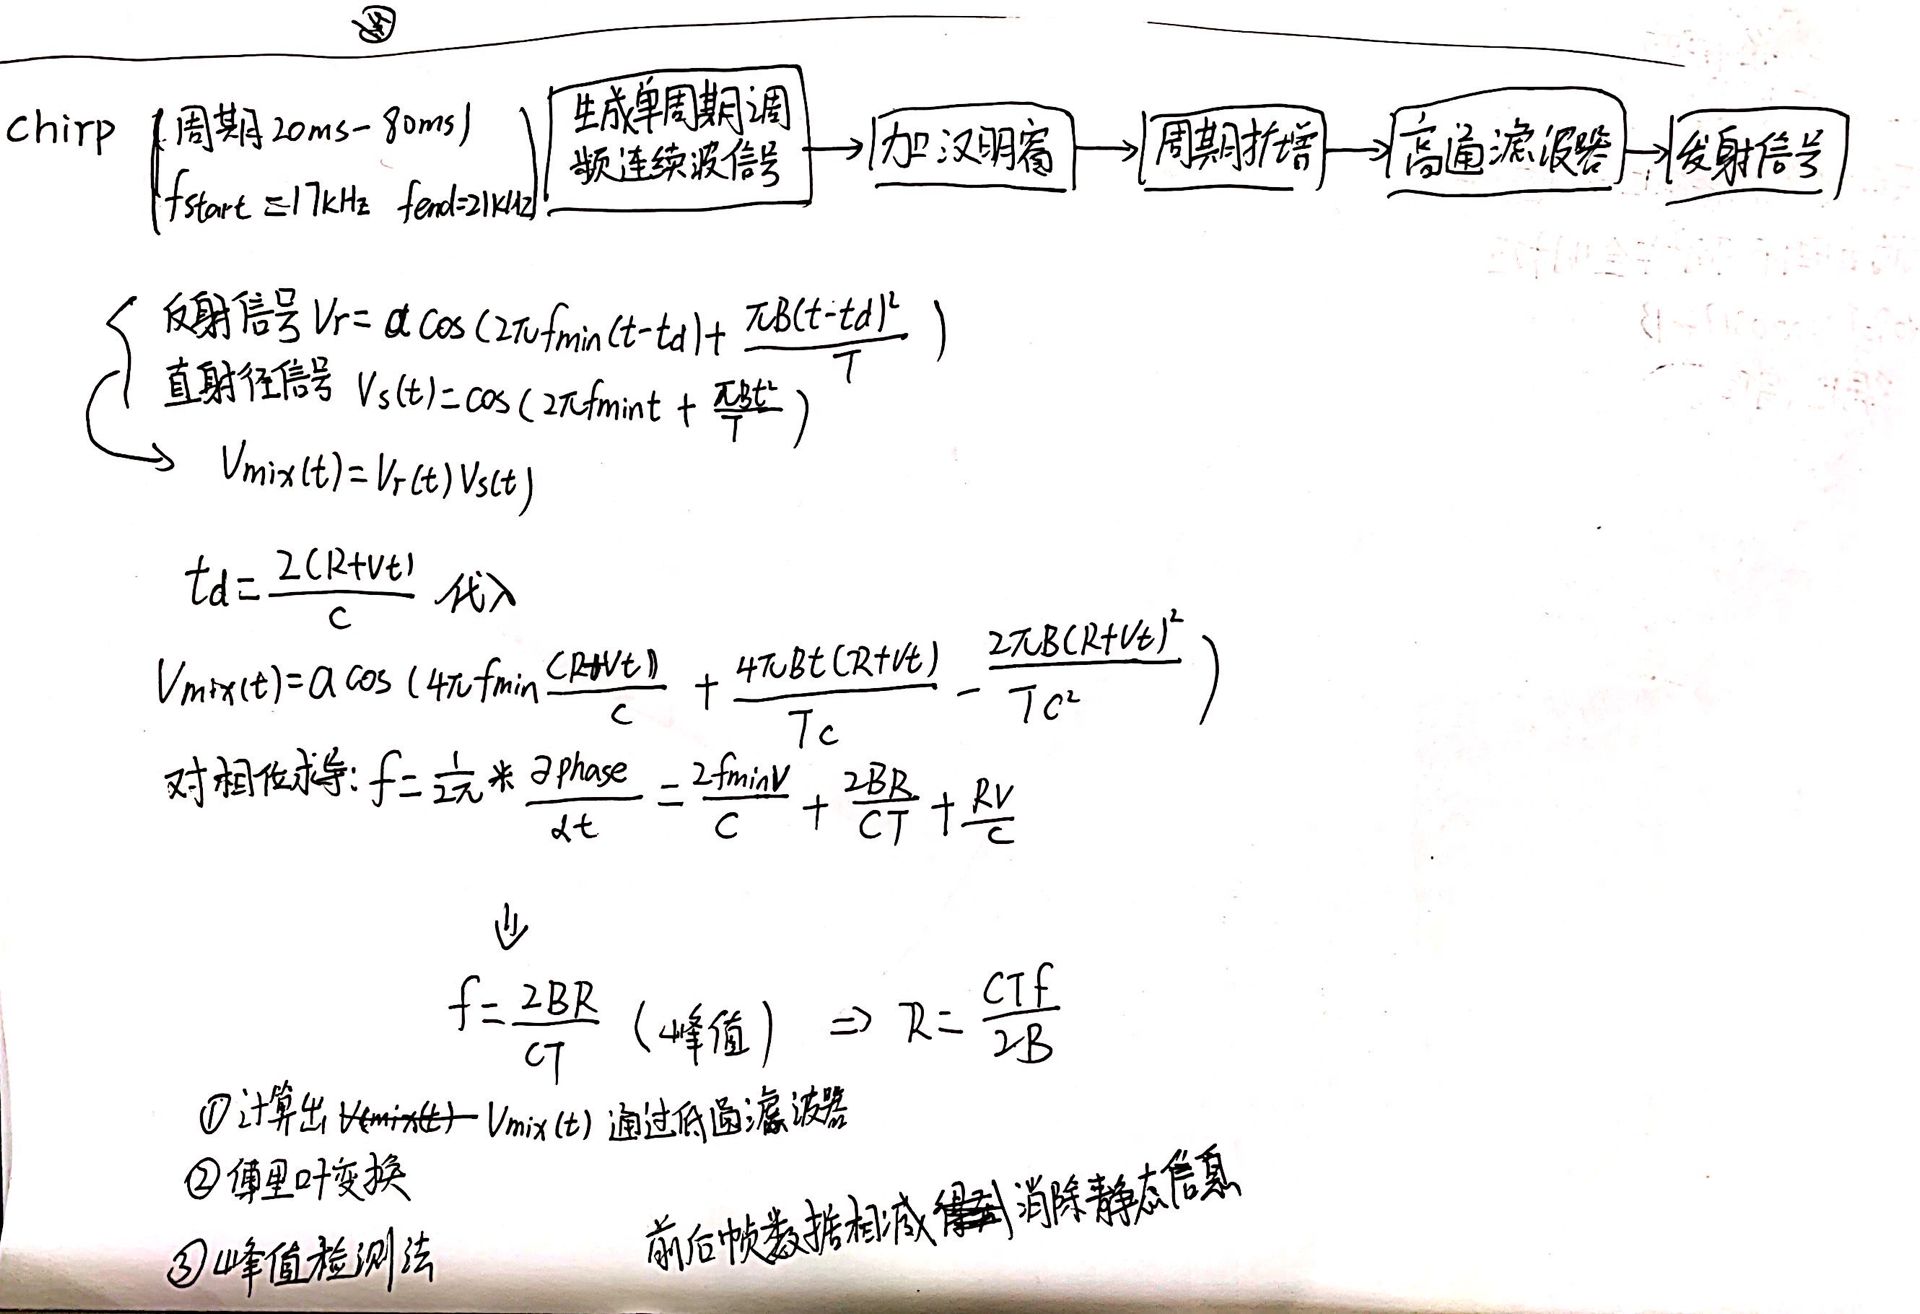 chirp
周期20ms-80ms
fstart=17kHz fend=21kHz
生成单周期调
频连续波信号
加汉明窗
周期扩增
高通滤波器
发射信号
反射信号 Vr = α cos (2πfmin(t-td) + πB(t-td)²/T)
直射径信号 Vs(t) = cos (2πfmint + πBt²/T)
Vmix(t) = Vr(t) Vs(t)
td = 2(R+Vt)/C 代入
Vmix(t) = α cos (4πfmin (R+Vt)/C + 4πBt(R+Vt)/TC - 2πB(R+Vt)²/TC²)
对相位求导: f = 1/2π * ∂phase/∂t = 2fminV/C + 2BR/CT + RV/C
⇓
f = 2BR/CT (峰值) ⇒ R = CTf/2B
①计算出 Vmix(t) 通过低通滤波器
②傅里叶变换
③峰值检测法
前后帧数据相减 消除静态信息